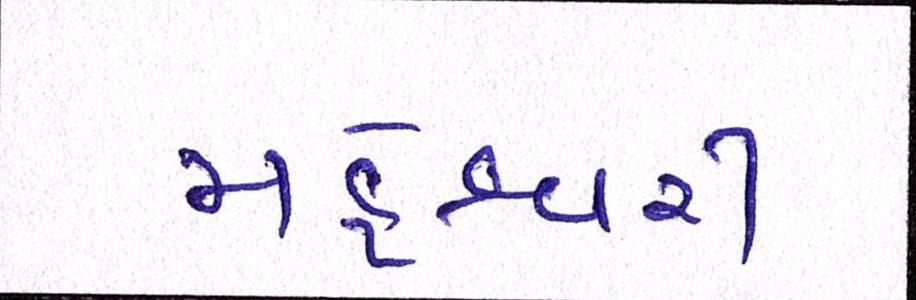 મહેશ્વરી